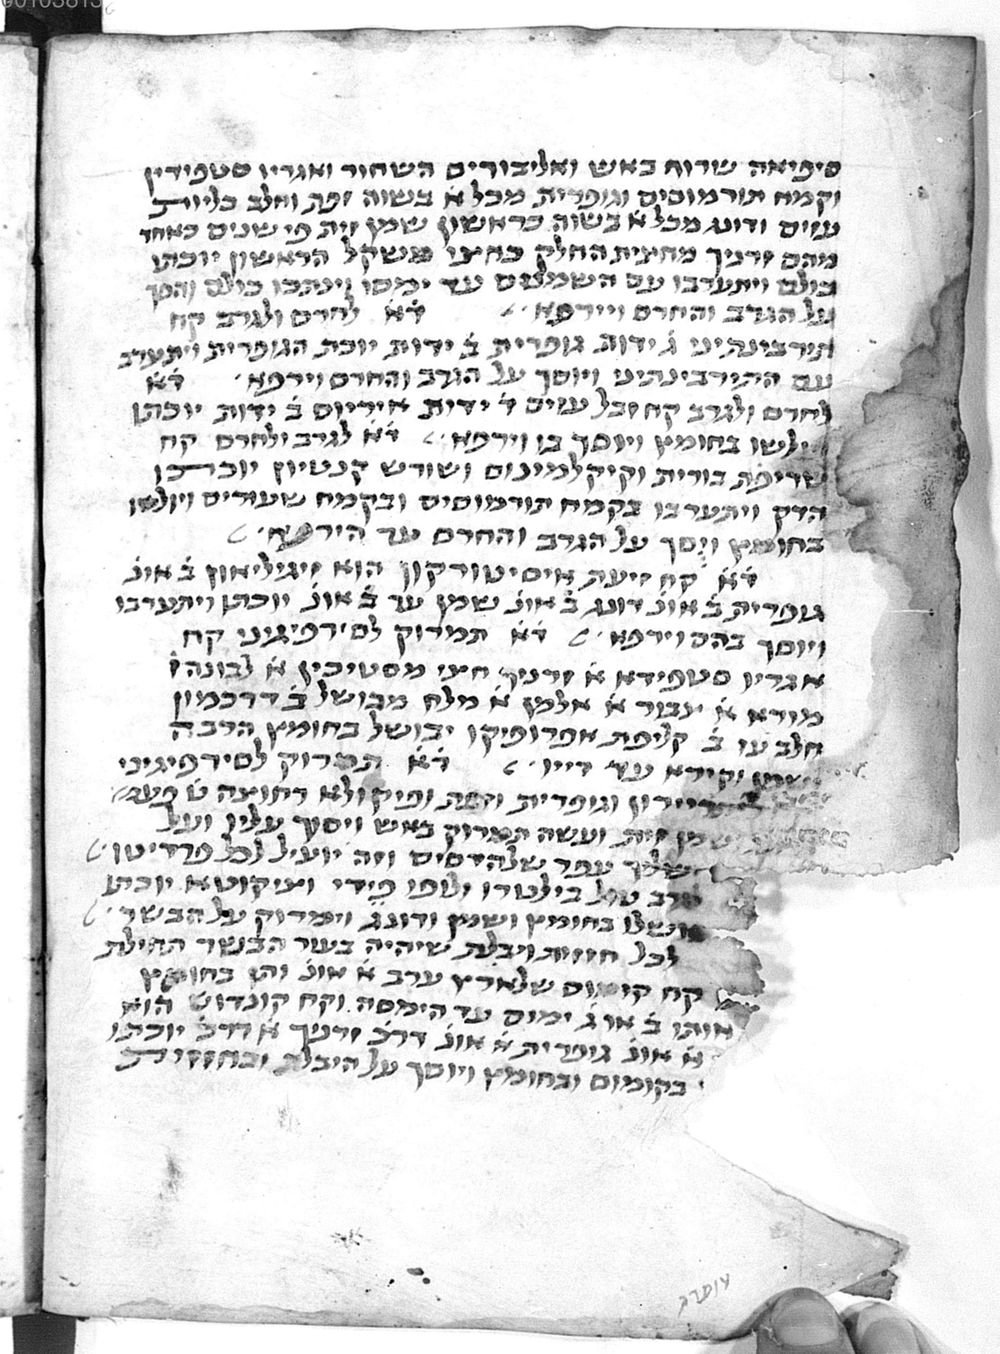 סיפיאה שרוח באש ואליבורים השחור ואגריו סטפידין
וקמח תורמוסים וגופרית מכל א בשוה זפת וחלב כליות
עזים ודונג מכל א בשוה כראשון שמן זית פי שנים כאחד
מהם זרניך מחצית החלק כחצי משקל הראשון יוכתו
כולם ויתערבו עם השמנים עד ימסו וינתכו כולם והסך
על הגרב והחרס ויירפא ד״א לחרס ולגרב קח
תירבינתיני ג׳ ידות גופרית ב׳ ידות יוכת הגופרית ויתערב
עם התירבינתיני ויוסך על הגרב והחרס וירפא ד״א
לחרס ולגרב קח זבל עזים ד׳ ידות איריוס ב׳ ידות יוכתו
וילושו בחומץ ויוסך בו וירפא ד״א לגרב ולחרס קח
שריפת בורית וקיקלמינוס ושורש קנטיון יוכתון
הדק ויתערבו בקמח תורמוסים ובקמח שעורים וילושו
בחומץ ויסך על הגרב והחרס עד הירפא
ד״א קח זיעת איסיטורקון הוא זיגיליאון ב׳ אונ׳
גופרית ב׳ אונ׳ דונג ב׳ אונ׳ שמן עד ב׳ אונ׳ יוכתו ויתערבו
ויוסך בהם וירפא ד״א תמרוק לסירפיגיני קח
אגריו סטפידא א׳ זרניך חצי מסטיכין א׳ לבונה ו
מורא א׳ עבור א׳ אלמן א׳ מלח מבושל ב׳ דרכמון
חלב עז ב׳ קליפת אפרופיקו יבושל בחומץ הרבה
ושמן וקירא עד דייו ד״א תמרוק לסירפיגיני
וגופרית וזפת ופיקולא רחוצה ט׳ פעמ׳
שמן זית ועשה תמרוק באש ויסוך עליו ועל
שליך עפר שלהדסים וזה יועיל לכל פרדיטו
בילטרו יופי פידי וציקוטא יוכתו
בחומץ ושמן ודונג וימרוק על הבשר
לכל חזזות ויבלת שיהיה בעור הבשר תחילת
קח קומוס שלארץ ערב א׳ אונ׳ ותן בחומץ
אותו ב׳ או ג׳ ימים עד הימסה וקח קונדוט הוא
א׳ אונ׳ גופרית א׳ אונ׳ דרכ׳ זרניך א׳ דרכ׳ יוכתו
בקומוס ובחומץ ויוסך על היבלת ובחזזית